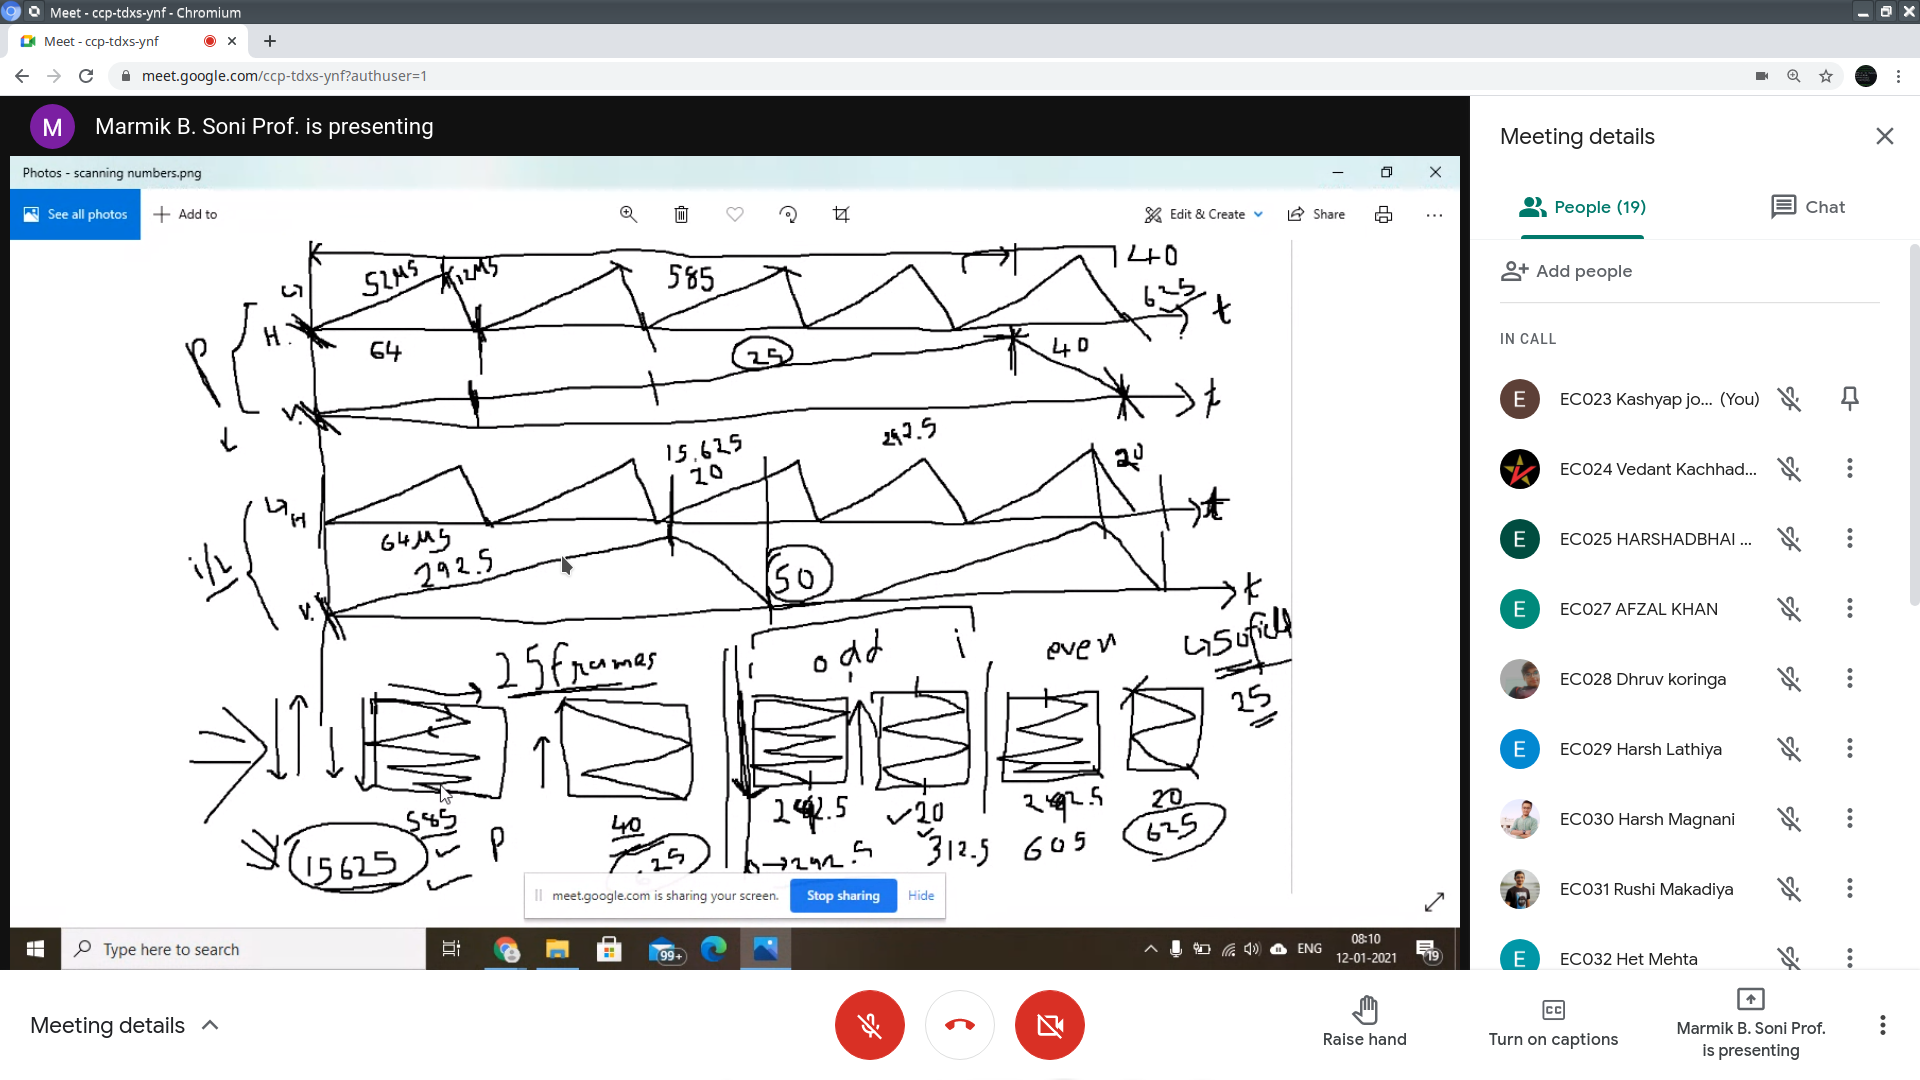 Meet - ccp-tdxs-ynf - Chromium
Meet - ccp-tdxs-ynf
meet.google.com/ccp-tdxs-ynf?authuser=1
M
Marmik B. Soni Prof. is presenting
Photos - scanning numbers.png
See all photos
Add to
Edit & Create
Share
52μs
12μs
585
40
625
t
P
H.
64
25
40
V.
t
15.625
20
292.5
20
i/2
H
64μs
292.5
50
t
V.
t
25 frames
odd
i
even
50 field
25
585
P
40
625
15625
292.5
20
312.5
292.5
605
20
625
292.5
meet.google.com is sharing your screen.
Stop sharing
Hide
Type here to search
99+
ENG
08:10
12-01-2021
19
Meeting details
People (19)
Chat
Add people
IN CALL
E
EC023 Kashyap jo... (You)
EC024 Vedant Kachhad...
E
EC025 HARSHADBHAI ...
E
EC027 AFZAL KHAN
EC028 Dhruv koringa
E
EC029 Harsh Lathiya
EC030 Harsh Magnani
EC031 Rushi Makadiya
E
EC032 Het Mehta
Meeting details
Raise hand
CC
Turn on captions
Marmik B. Soni Prof.
is presenting